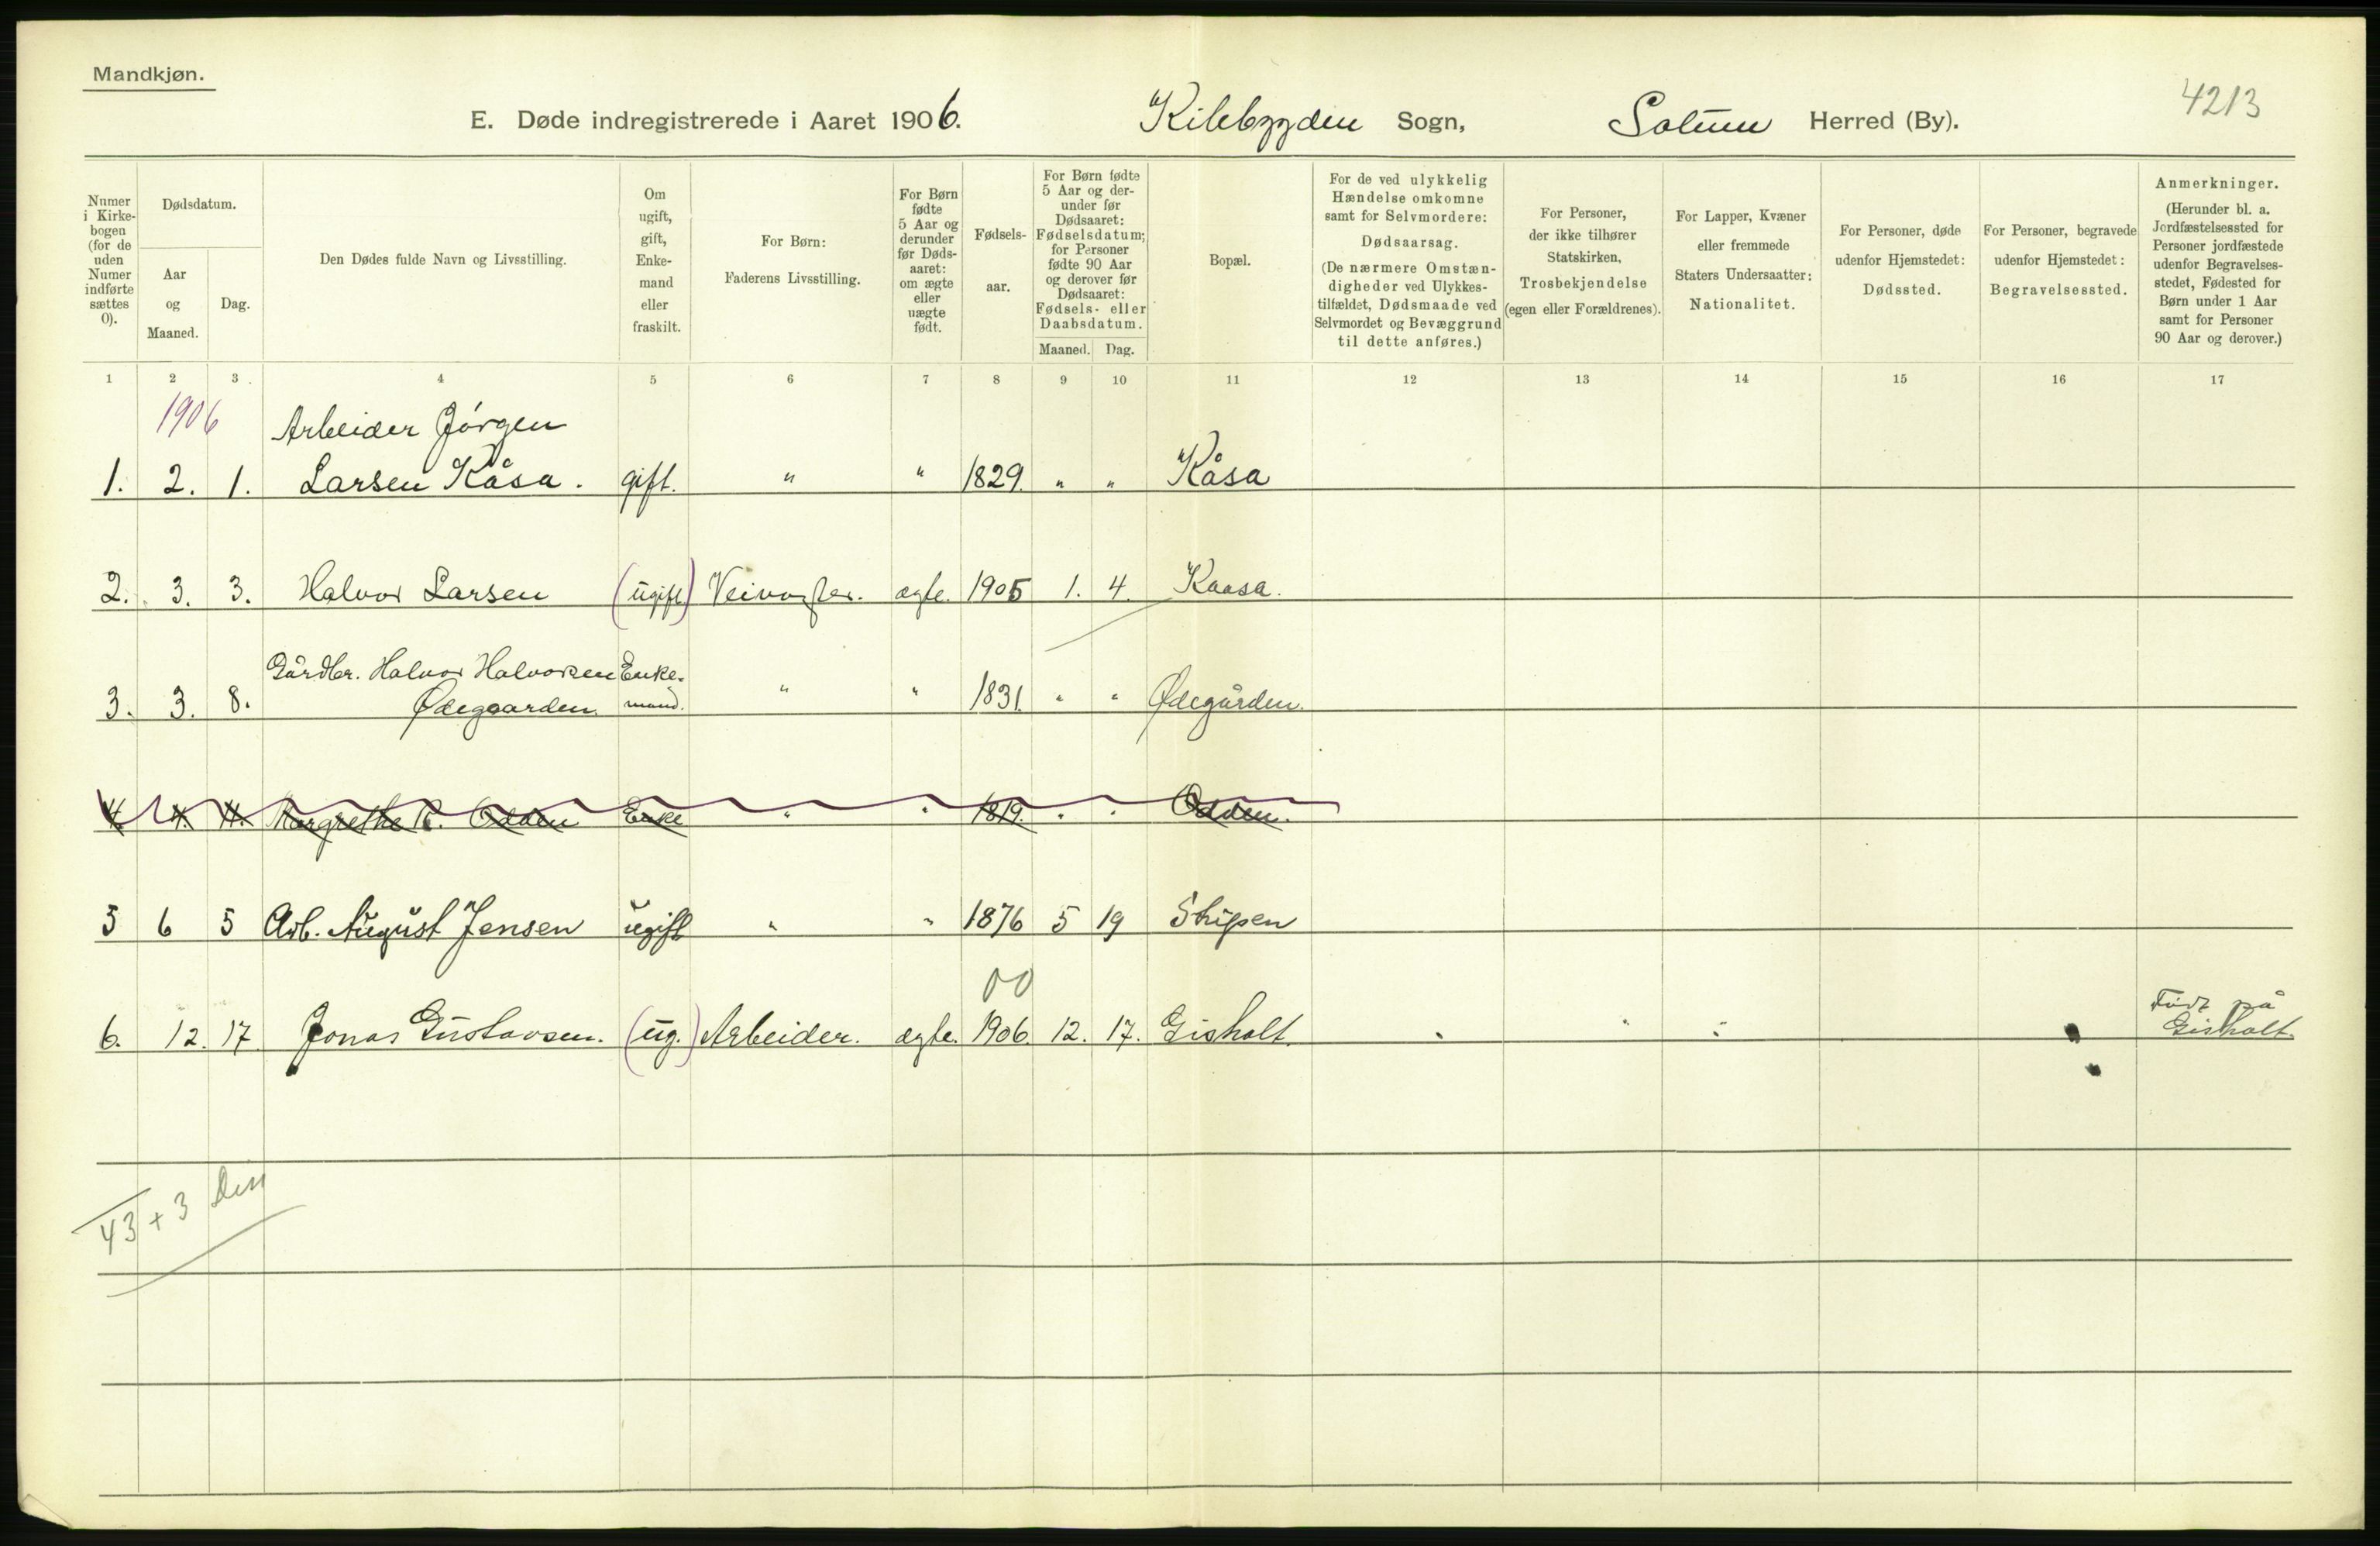 Mandkjøn.
4213
E. Døde indregistrerede i Aaret 1906. Kilebygden Sogn, Solum Herred (By).
Numer i Kirkebogen (for de uden Numer indførte sættes 0).
Dødsdatum.
Aar og Maaned.
Dag.
Den Dødes fulde Navn og Livsstilling.
Om ugift, gift, Enkemand eller fraskilt.
For Børn: Faderens Livsstilling.
For Børn fødte 5 Aar og derunder før Dødsaaret: om ægte eller uægte født.
Fødselsaar.
For Børn fødte 5 Aar og derunder før Dødsaaret: Fødselsdatum; for Personer fødte 90 Aar og derover før Dødsaaret: Fødsels- eller Daabsdatum.
Maaned. Dag.
Bopæl.
For de ved ulykkelig Hændelse omkomne samt for Selvmordere: Dødsaarsag. (De nærmere Omstændigheder ved Ulykkestilfældet, Dødsmaade ved Selvmordet og Bevæggrund til dette anføres.)
For Personer, der ikke tilhører Statskirken, Trosbekjendelse (egen eller Forældrenes).
For Lapper, Kvæner eller fremmede Staters Undersaatter: Nationalitet.
For Personer, døde udenfor Hjemstedet: Dødssted.
For Personer, begravede udenfor Hjemstedet: Begravelsessted.
Anmerkninger. (Herunder bl. a. Jordfæstelsessted for Personer jordfæstede udenfor Begravelsesstedet, Fødested for Børn under 1 Aar samt for Personer 90 Aar og derover.)
1 2 3 4 5 6 7 8 9 10 11 12 13 14 15 16 17
1906 Arbeider Jörgen
1. 2. 1. Larsen Kåsa. gift. " " 1829. " " Kåsa
2. 3. 3. Halvor Larsen (ugift) Veivogter. ægte. 1905 1. 4. Kaasa.
Gårdbr. Halvor Halvorsen Enke-
3. 3. 8. Ødegaarden. mand. " " 1831. " " Ødegården.
4. 4. 4. Margrethe K. Odden Enke " " 1819. " " Odden.
5 6 5 Arb. August Jensen ugift " " 1876 5 19 Stripen
00
Födt på
6. 12. 17 Jonas Gustavsen. (ug.) Arbeider. ægte. 1906. 12. 17. Gisholt. " " " " Gisholt.
43 + 3